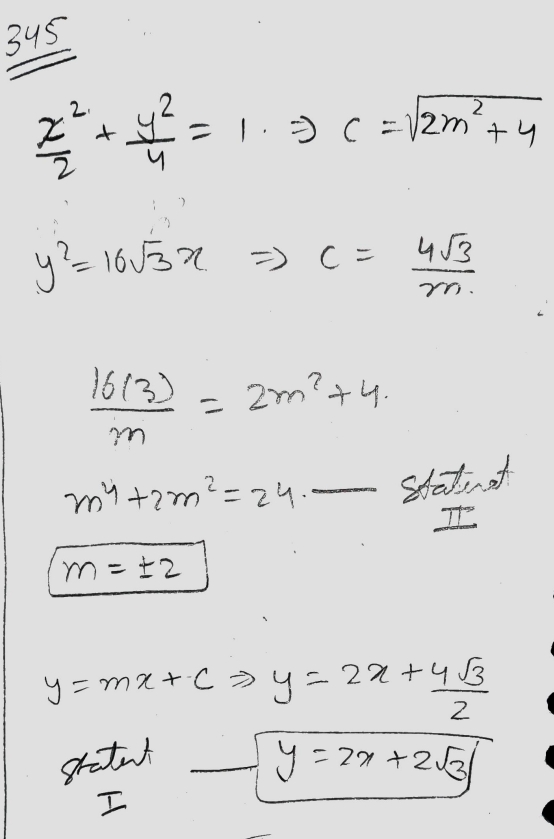 345
x²/2 + y²/4 = 1. ⇒ C = √(2m² + 4)
y² = 16√3x ⇒ C = 4√3/m.
16(3)/m = 2m² + 4.
m⁴ + 2m² = 24. — Statemet II
m = ±2
y = mx + C ⇒ y = 2x + 4√3/2
Statent I — y = 2x + 2√3